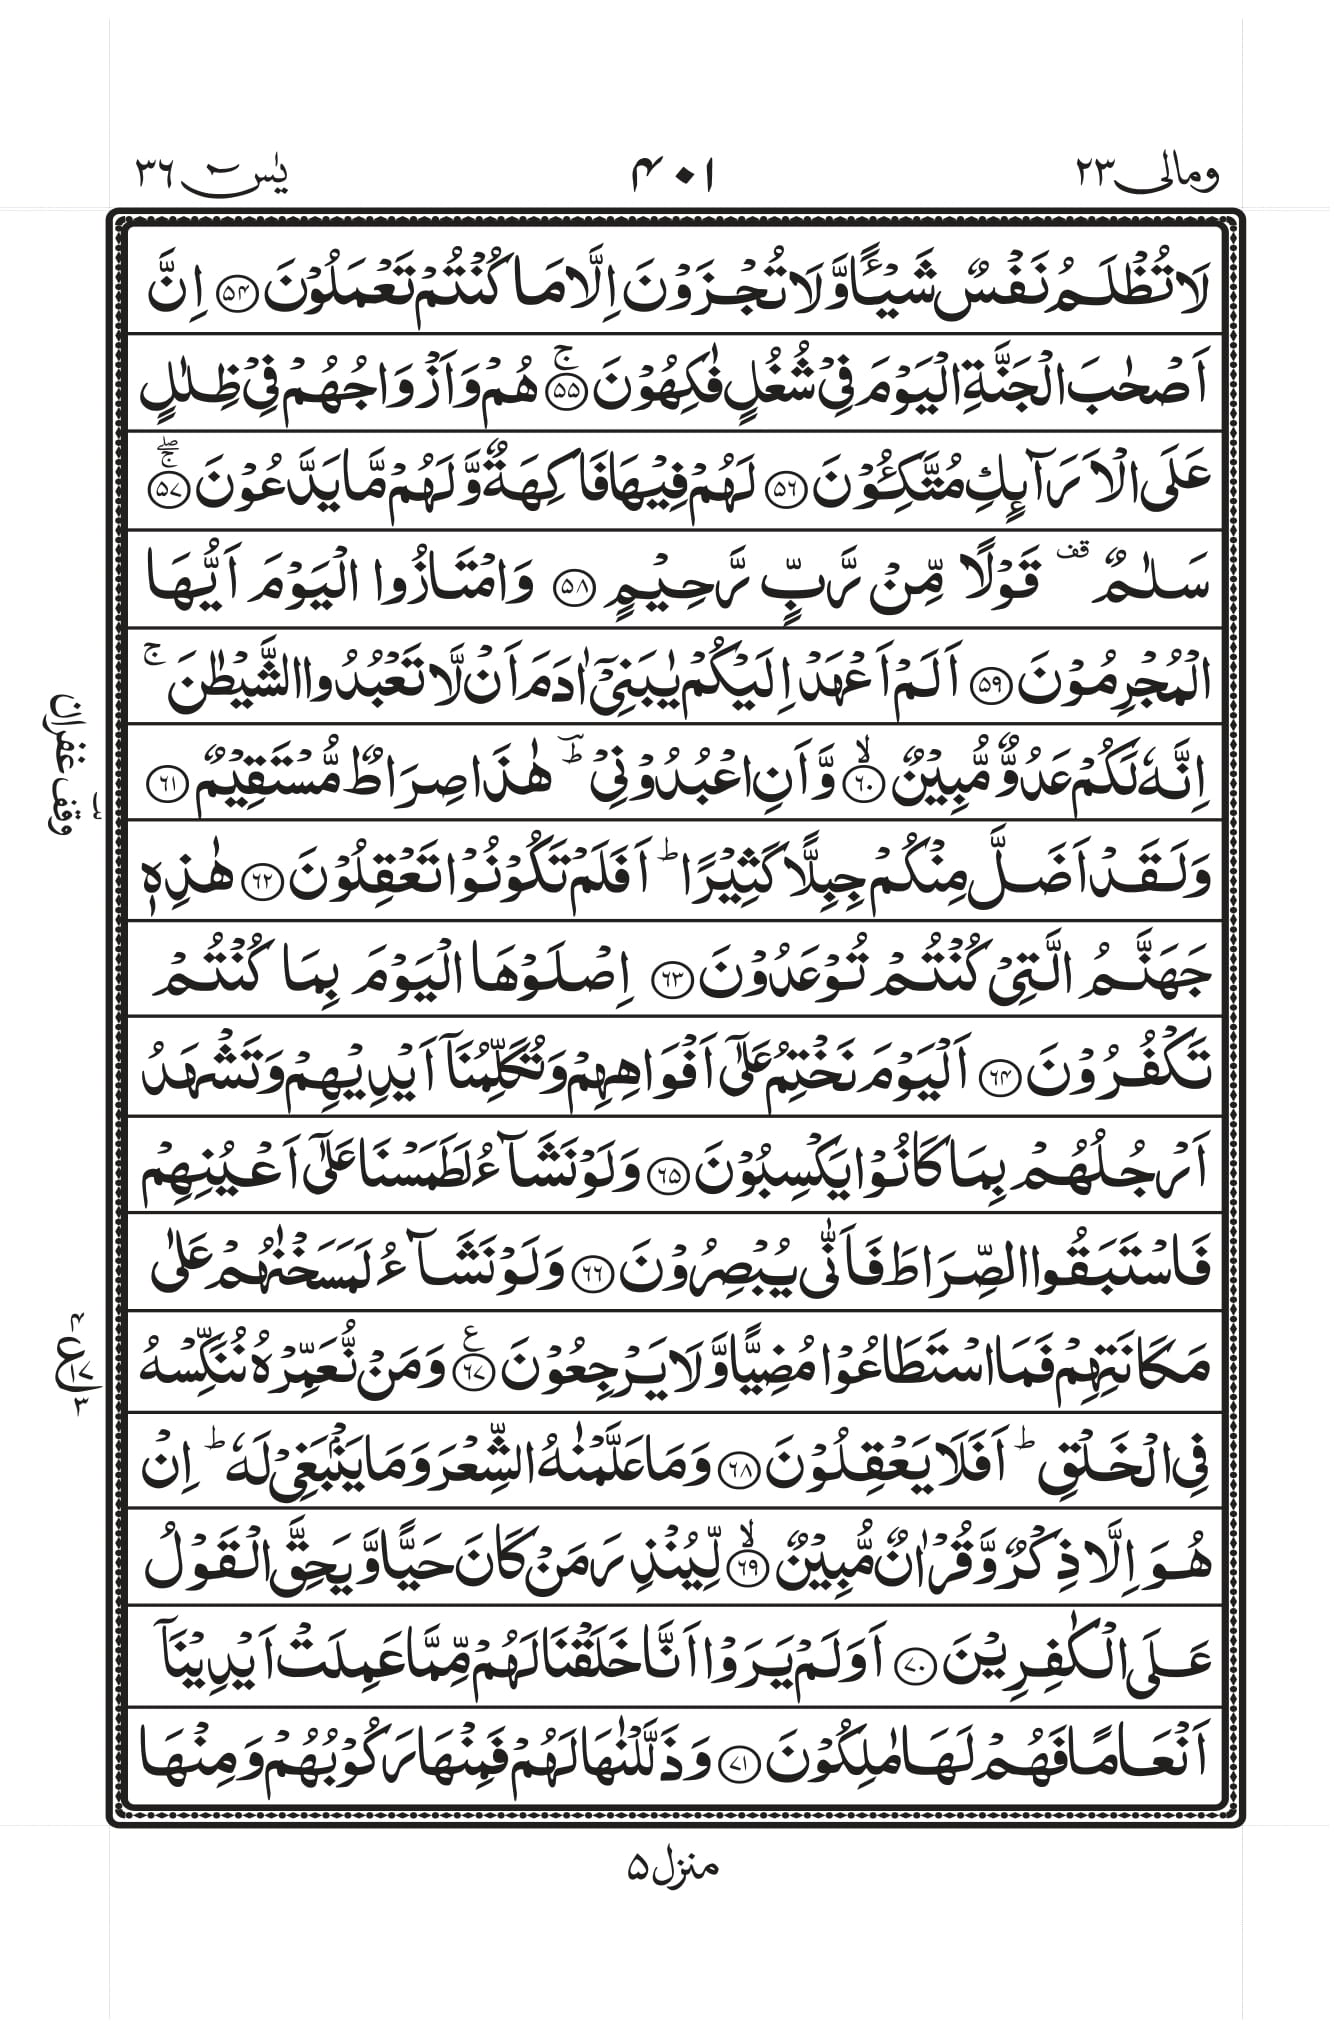 ومالی ۲۳
۴۰۱
یٰسٓ ۳۶
لَا تُظْلَمُ نَفْسٌ شَيْـًٔا وَّلَا تُجْزَوْنَ اِلَّا مَا كُنْتُمْ تَعْمَلُوْنَ ۝۵۴ اِنَّ
اَصْحٰبَ الْجَنَّةِ الْيَوْمَ فِيْ شُغُلٍ فٰكِهُوْنَ ۝۵۵ۚ هُمْ وَاَزْوَاجُهُمْ فِيْ ظِلٰلٍ
عَلَى الْاَرَآئِكِ مُتَّكِـُٔوْنَ ۝۵۶ لَهُمْ فِيْهَا فَاكِهَةٌ وَّلَهُمْ مَّا يَدَّعُوْنَ ۝۵۷ۚۖ
سَلٰمٌ ۣ قف قَوْلًا مِّنْ رَّبٍّ رَّحِيْمٍ ۝۵۸ وَامْتَازُوا الْيَوْمَ اَيُّهَا
الْمُجْرِمُوْنَ ۝۵۹ اَلَمْ اَعْهَدْ اِلَيْكُمْ يٰبَنِيْٓ اٰدَمَ اَنْ لَّا تَعْبُدُوا الشَّيْطٰنَ ۚ
اِنَّهٗ لَكُمْ عَدُوٌّ مُّبِيْنٌ ۝۶۰ۙ وَّاَنِ اعْبُدُوْنِيْ ؔؕ هٰذَا صِرَاطٌ مُّسْتَقِيْمٌ ۝۶۱
وَلَقَدْ اَضَلَّ مِنْكُمْ جِبِلًّا كَثِيْرًا ؕ اَفَلَمْ تَكُوْنُوْا تَعْقِلُوْنَ ۝۶۲ هٰذِهٖ
جَهَنَّمُ الَّتِيْ كُنْتُمْ تُوْعَدُوْنَ ۝۶۳ اِصْلَوْهَا الْيَوْمَ بِمَا كُنْتُمْ
تَكْفُرُوْنَ ۝۶۴ اَلْيَوْمَ نَخْتِمُ عَلٰٓى اَفْوَاهِهِمْ وَتُكَلِّمُنَآ اَيْدِيْهِمْ وَتَشْهَدُ
اَرْجُلُهُمْ بِمَا كَانُوْا يَكْسِبُوْنَ ۝۶۵ وَلَوْ نَشَآءُ لَطَمَسْنَا عَلٰٓى اَعْيُنِهِمْ
فَاسْتَبَقُوا الصِّرَاطَ فَاَنّٰى يُبْصِرُوْنَ ۝۶۶ وَلَوْ نَشَآءُ لَمَسَخْنٰهُمْ عَلٰى
مَكَانَتِهِمْ فَمَا اسْتَطَاعُوْا مُضِيًّا وَّلَا يَرْجِعُوْنَ ۝۶۷ ع وَمَنْ نُّعَمِّرْهُ نُنَكِّسْهُ
فِي الْخَلْقِ ؕ اَفَلَا يَعْقِلُوْنَ ۝۶۸ وَمَا عَلَّمْنٰهُ الشِّعْرَ وَمَا يَنْۢبَغِيْ لَهٗ ؕ اِنْ
هُوَ اِلَّا ذِكْرٌ وَّقُرْاٰنٌ مُّبِيْنٌ ۝۶۹ۙ لِّيُنْذِرَ مَنْ كَانَ حَيًّا وَّيَحِقَّ الْقَوْلُ
عَلَى الْكٰفِرِيْنَ ۝۷۰ اَوَلَمْ يَرَوْا اَنَّا خَلَقْنَا لَهُمْ مِّمَّا عَمِلَتْ اَيْدِيْنَآ
اَنْعَامًا فَهُمْ لَهَا مٰلِكُوْنَ ۝۷۱ وَذَلَّلْنٰهَا لَهُمْ فَمِنْهَا رَكُوْبُهُمْ وَمِنْهَا
وقف غفران
ع ۱۷ ۳
منزل ۵